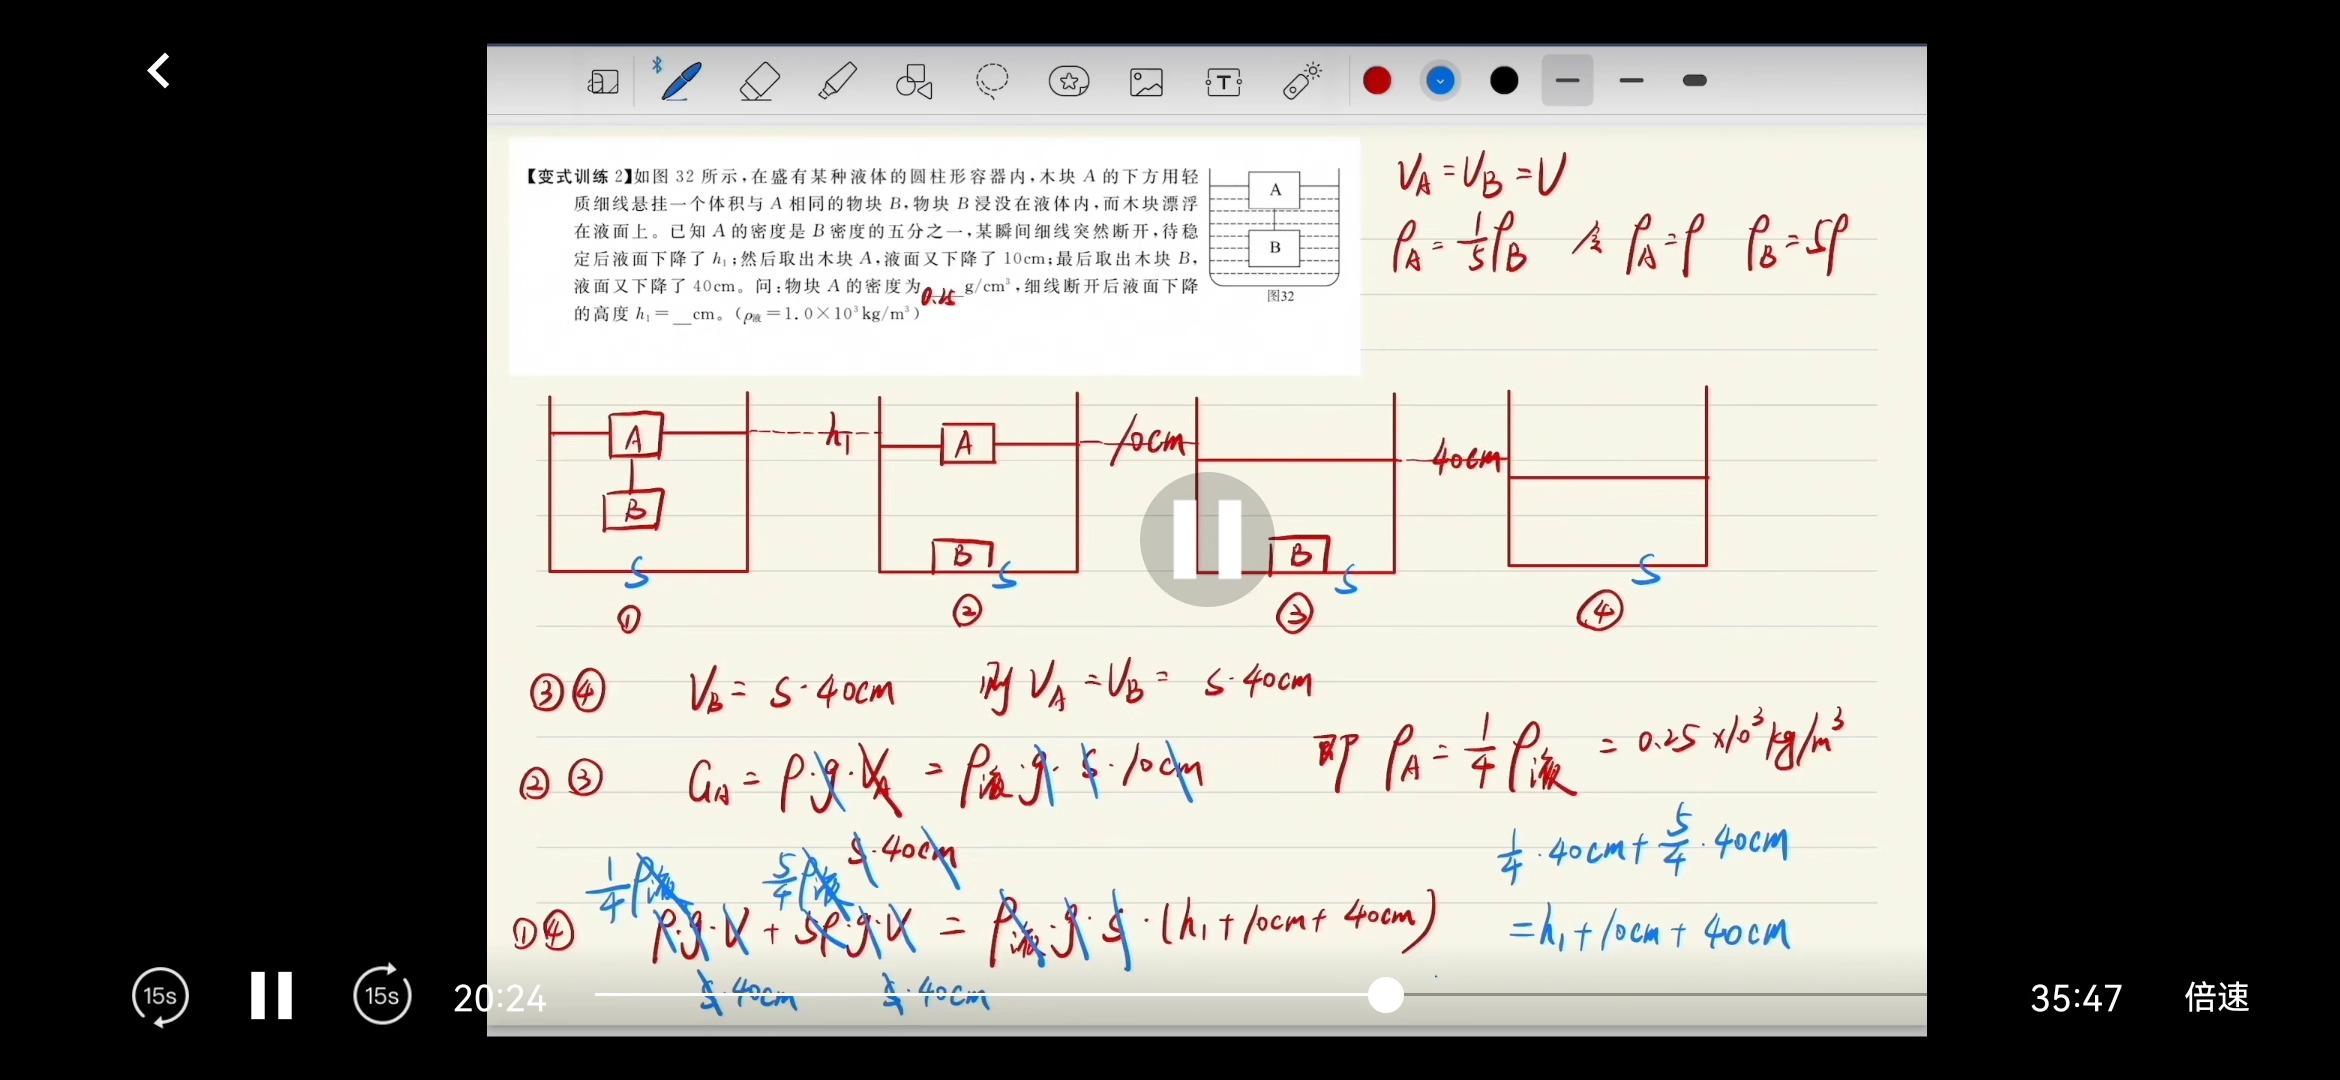 【变式训练 2】如图 32 所示,在盛有某种液体的圆柱形容器内,木块 A 的下方用轻
质细线悬挂一个体积与 A 相同的物块 B,物块 B 浸没在液体内,而木块漂浮
在液面上。已知 A 的密度是 B 密度的五分之一,某瞬间细线突然断开,待稳
定后液面下降了 h₁;然后取出木块 A,液面又下降了 10cm;最后取出木块 B,
液面又下降了 40cm。问:物块 A 的密度为 0.25 g/cm³,细线断开后液面下降
的高度 h₁=__cm。(ρ液=1.0×10³kg/m³)
A
B
图32
V_A=V_B=V
ρ_A=1/5ρ_B 令 ρ_A=ρ ρ_B=5ρ
A h₁ A 10cm 40cm
B B B
S S S S
① ② ③ ④
③④ V_B=S·40cm 则 V_A=V_B=S·40cm
②③ G_A=ρ·g·V_A=ρ液·g·S·10cm 即 ρ_A=1/4ρ液=0.25×10³kg/m³
S·40cm
1/4ρ液 5/4ρ液 1/4·40cm+5/4·40cm
①④ ρ·g·V+5ρ·g·V=ρ液·g·S·(h₁+10cm+40cm) =h₁+10cm+40cm
S·40cm S·40cm
15s 15s 20:24 35:47 倍速